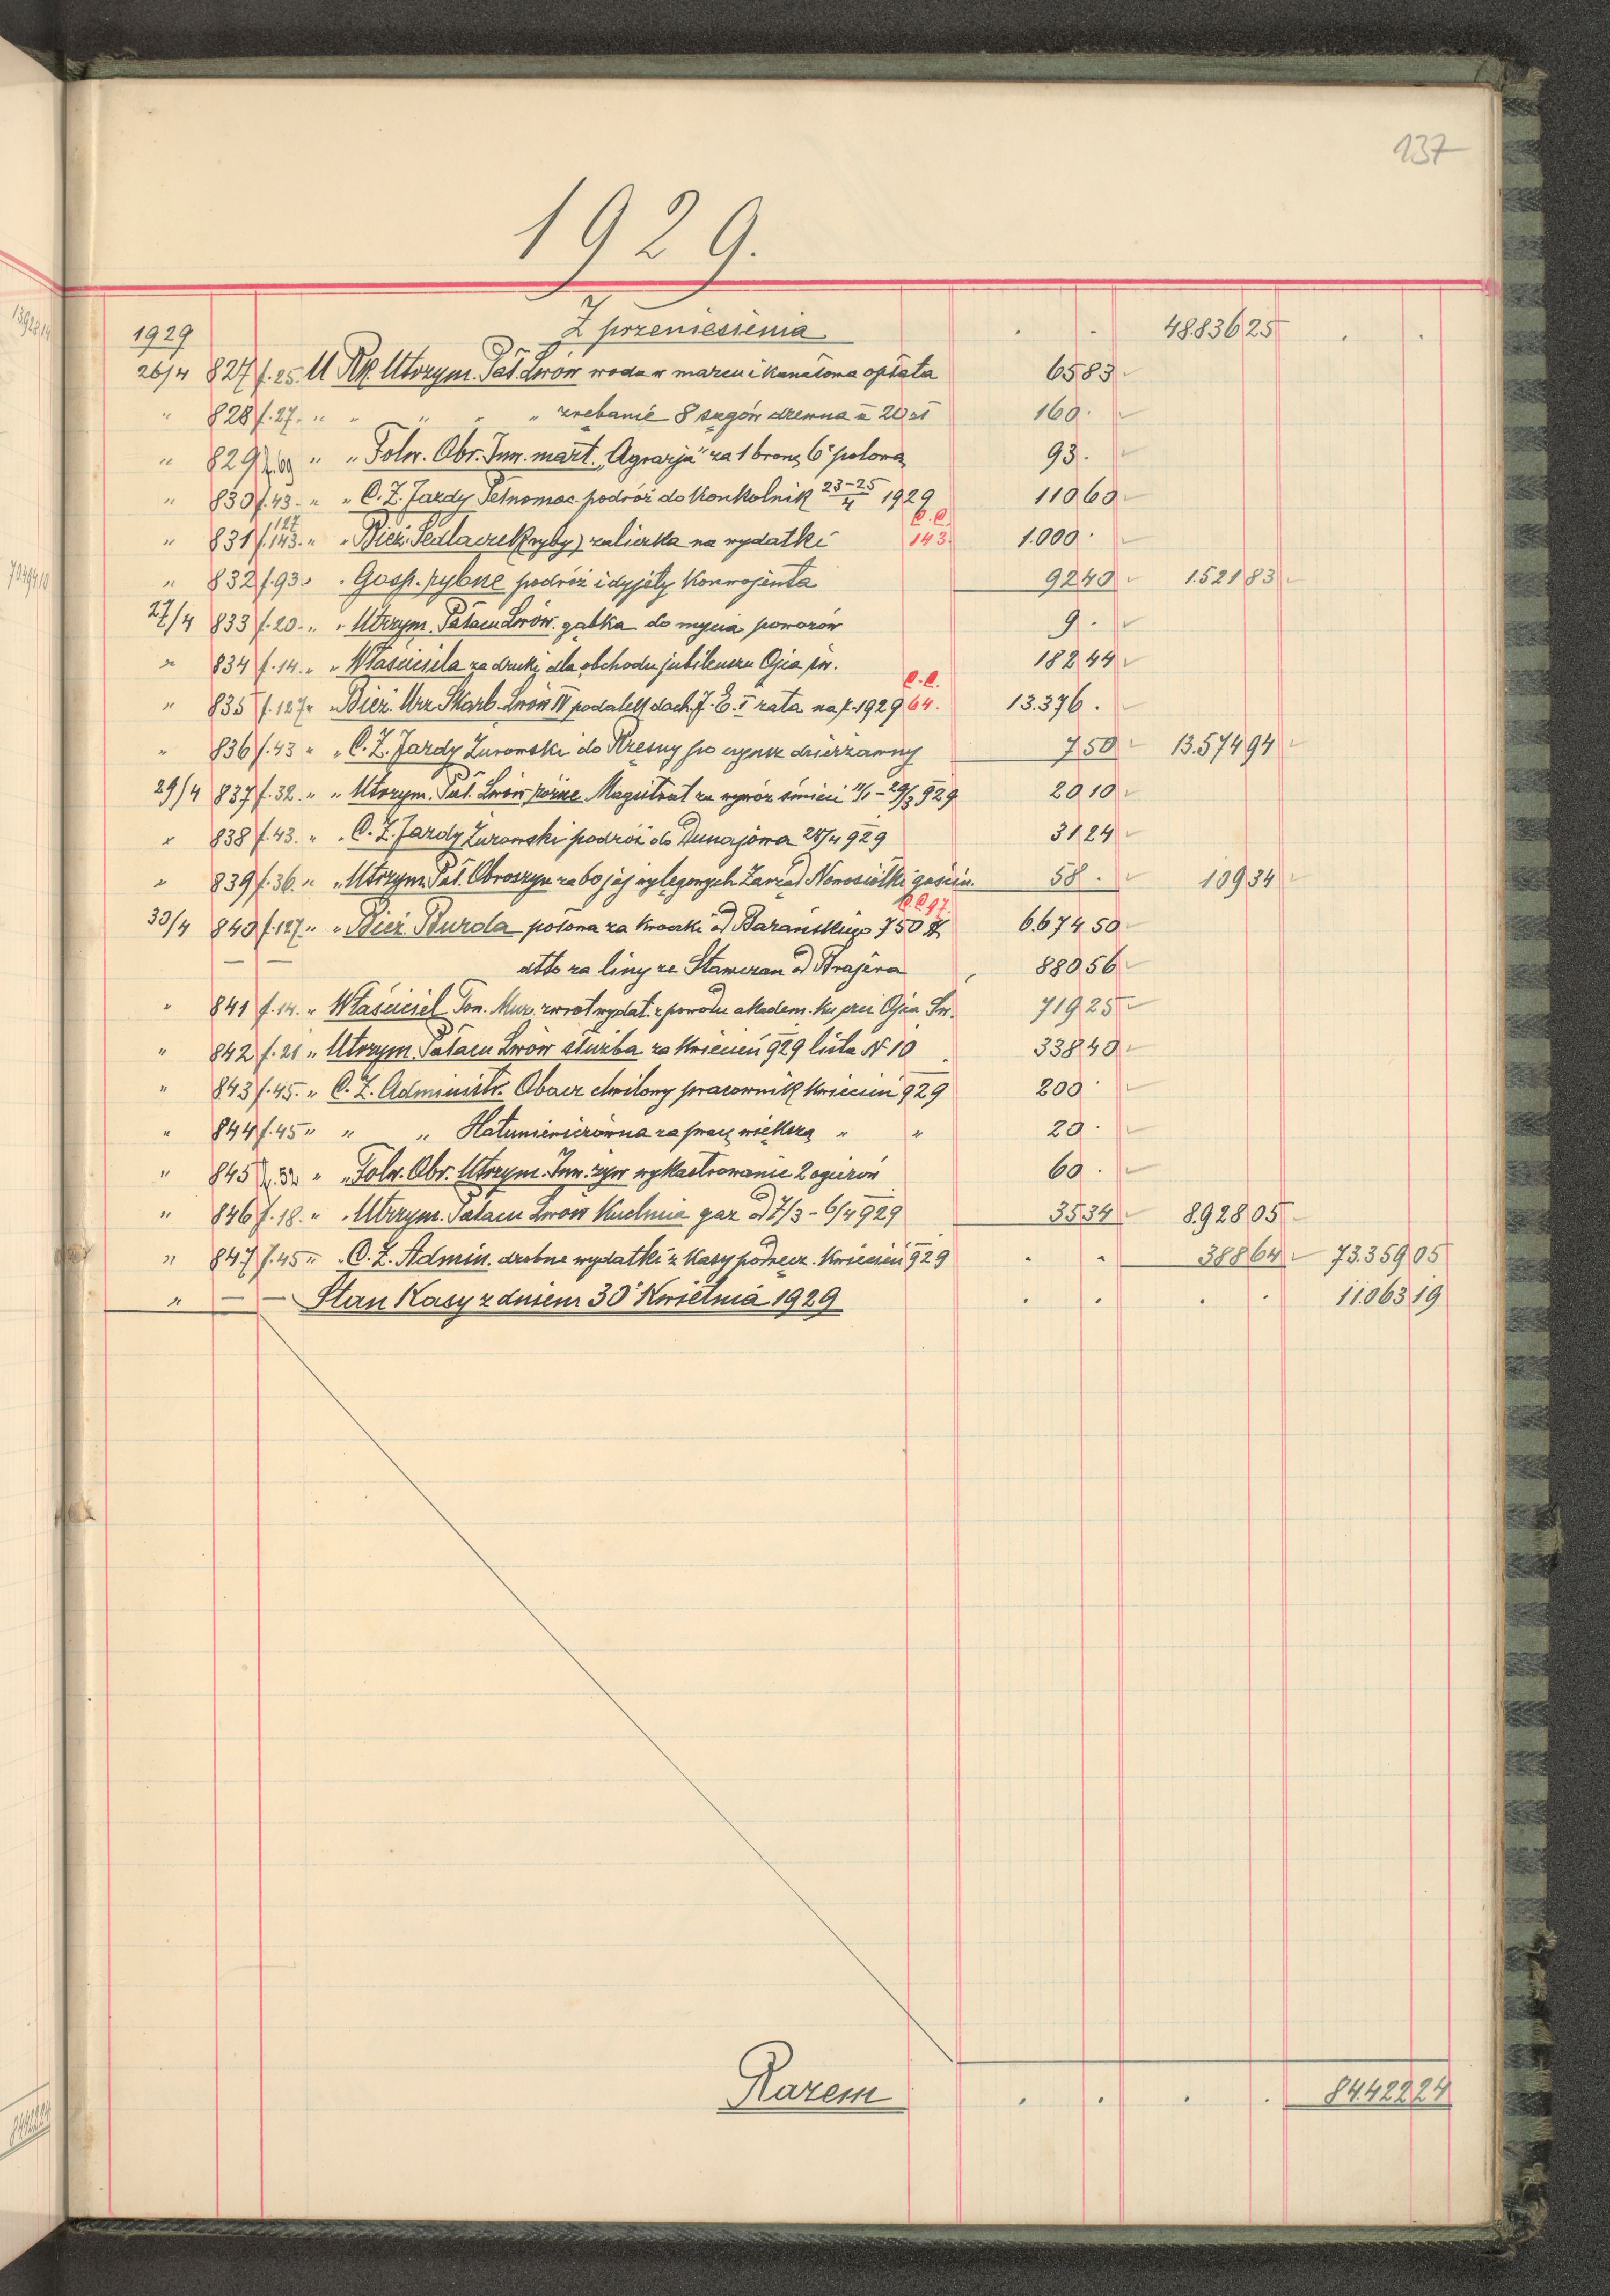 137
1929.
1929 Z przeniesienia . . 48.836 25 . .
26/4 827 f. 25. U Rk. Utrzym. Pał. Lwów woda w marcu i kanałowa opłata 65 83
" 828 f. 27. " " " " " zrębanie 8 sągów drewna à 20 zł 160 .
" 829 f. 69 " " Folw. Obr. Inw. mart. "Agrarja" za 1 bronę 6° polową 93 .
" 830 f. 43. " " C. Z. Jazdy Pełnomoc. podróż do Konkolnik 23-25/4 1929 110 60
" 831 f. 143. 127 " " Bież. Sedlaczek (ryby) zaliczka na wydatki C.C. 143. 1.000 .
" 832 f. 93. " Gosp. rybne podróż i dyjety Konwojenta 92 40 1.521 83
27/4 833 f. 20. " " Utrzym. Pałacu Lwów. gąbka do mycia powozów 9 .
" 834 f. 14. " " Właściciela za druki dla obchodu jubileuszu Ojca św. 182 44
" 835 f. 127 " " Bież. Urz. Skarb. Lwów IV podatek doch. J. E. I rata na r. 1929 C.C. 64. 13.376 .
" 836 f. 43 " " C. Z. Jazdy Żurowski do Kresny po czynsz dzierżawny 7 50 13.574 94
29/4 837 f. 32. " " Utrzym. Pał. Lwów różne Magistrat za wywóz śmieci 1/1 - 29/3 929 20 10
" 838 f. 43. " " C. Z. Jazdy Żurowski podróż do Dunajowa 25/4 929 31 24
" 839 f. 36. " " Utrzym. Pał. Obroszyn za 60 jaj wylęgowych Zarząd Nowosiółki gościn. 58 . 109 34
30/4 840 f. 127. " " Bież. Burda połowa za kroczki od Barańskiego 750 K C.C. 97. 6.674 50
— — dtto za liny ze Stawczan od Strajera 880 56
" 841 f. 14. " Właściciel Tow. Muz. zwrot wydat. z powodu akadem. ku czci Ojca Św. 719 25
" 842 f. 21 " Utrzym. Pałacu Lwów służba za Kwiecień 929 lista N 10 338 40
" 843 f. 45. " C. Z. Administr. Obacz chwilowy pracownik Kwiecień 929 200 .
" 844 f. 45 " " " Hatuniewiczówna za pracę większą " " 20 .
" 845 f. 52 " " Folw. Obr. Utrzym. Inw. żyw wykastrowanie 2 ogierów 60 .
" 846 f. 18. " " Utrzym. Pałacu Lwów Kuchnia gaz od 7/3 - 6/4 929 35 34 8.928 05
" 847 f. 45 " " C. Z. Admin. drobne wydatki z kasy podręcz. Kwiecień 929 . . 388 64 73.359 05
" — — Stan Kasy z dniem 30° Kwietnia 1929 . . . . 11.063 19
Razem . . . . 84.422 24